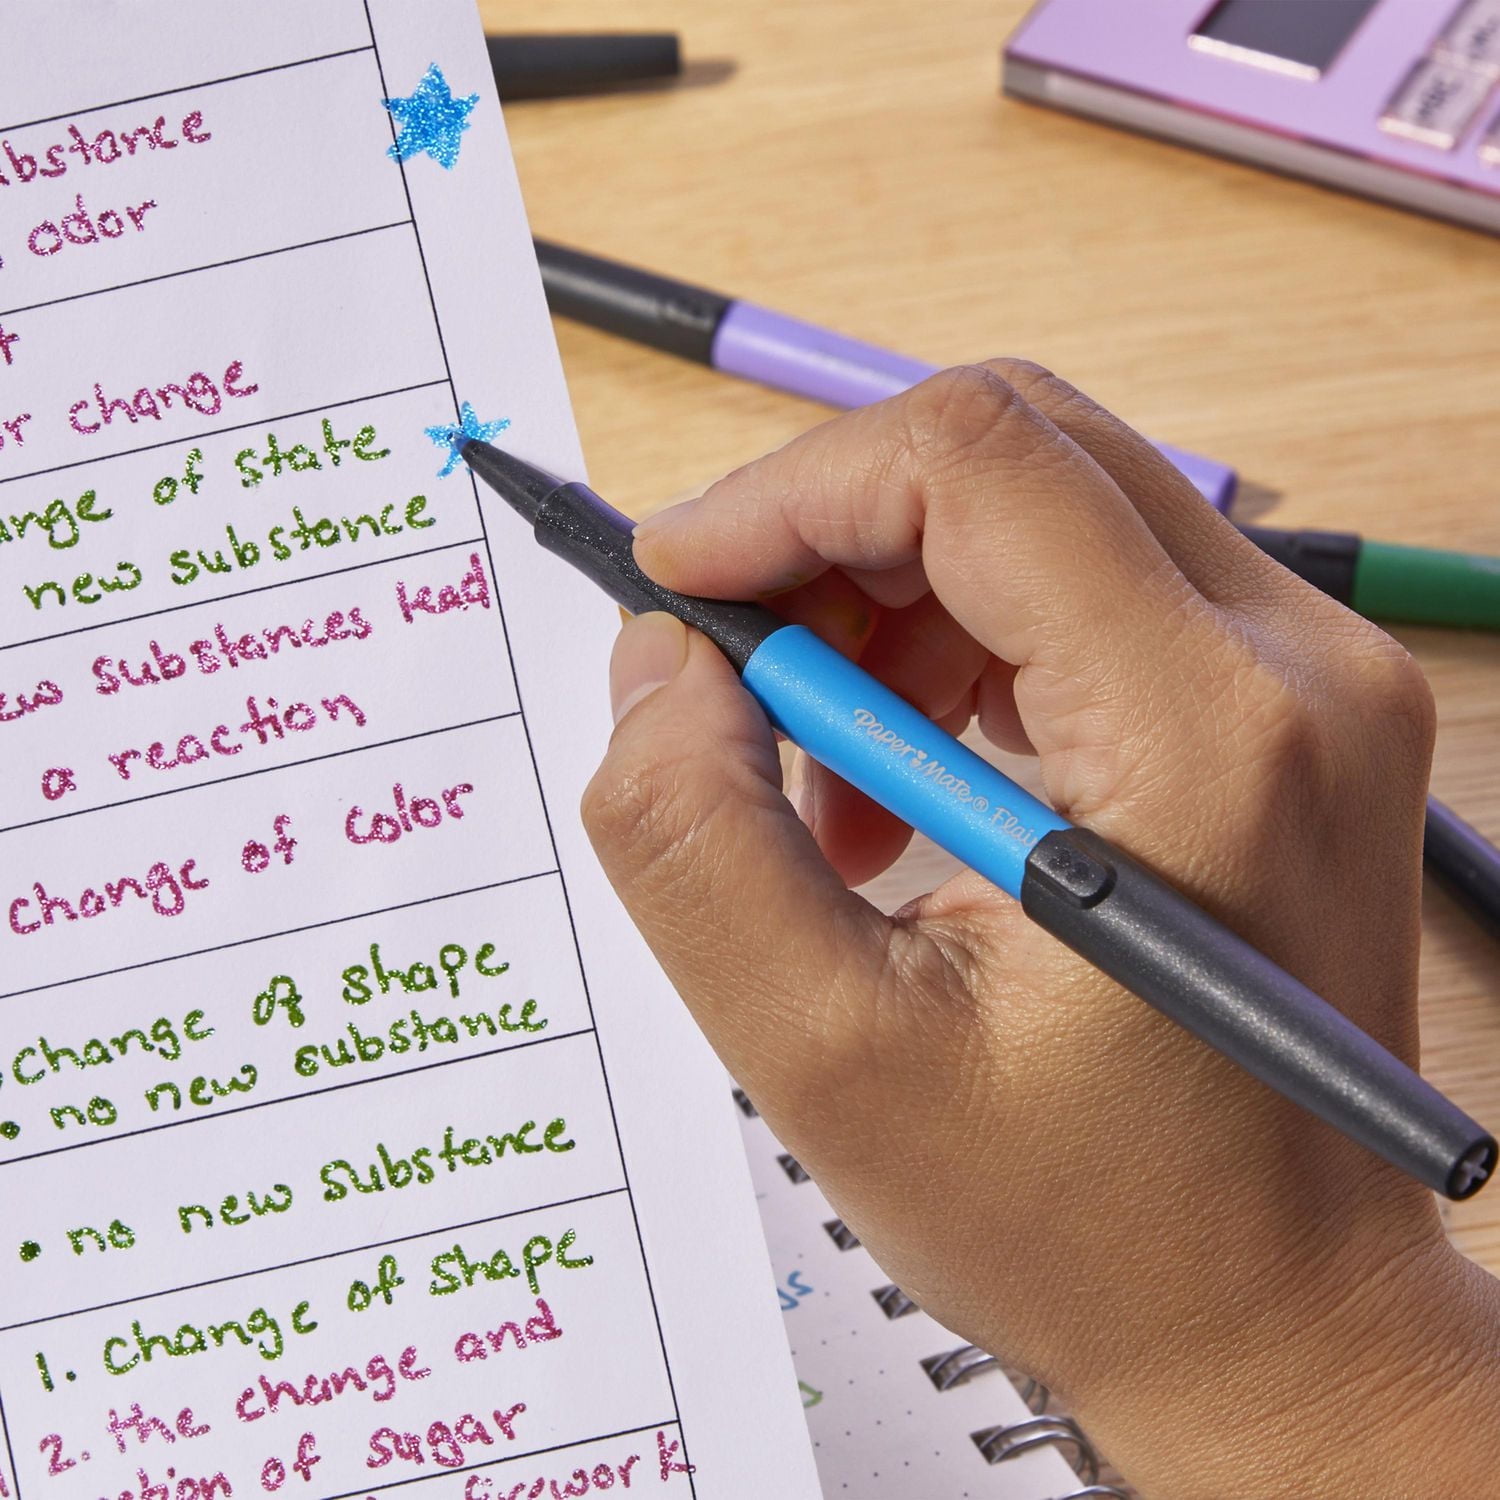 substance
odor
change
change of state
new substance
new substances lead
a reaction
change of color
change of shape
• no new substance
• no new substance
1. change of shape
2. the change and
of sugar
firework
Paper Mate® Flair
MRC